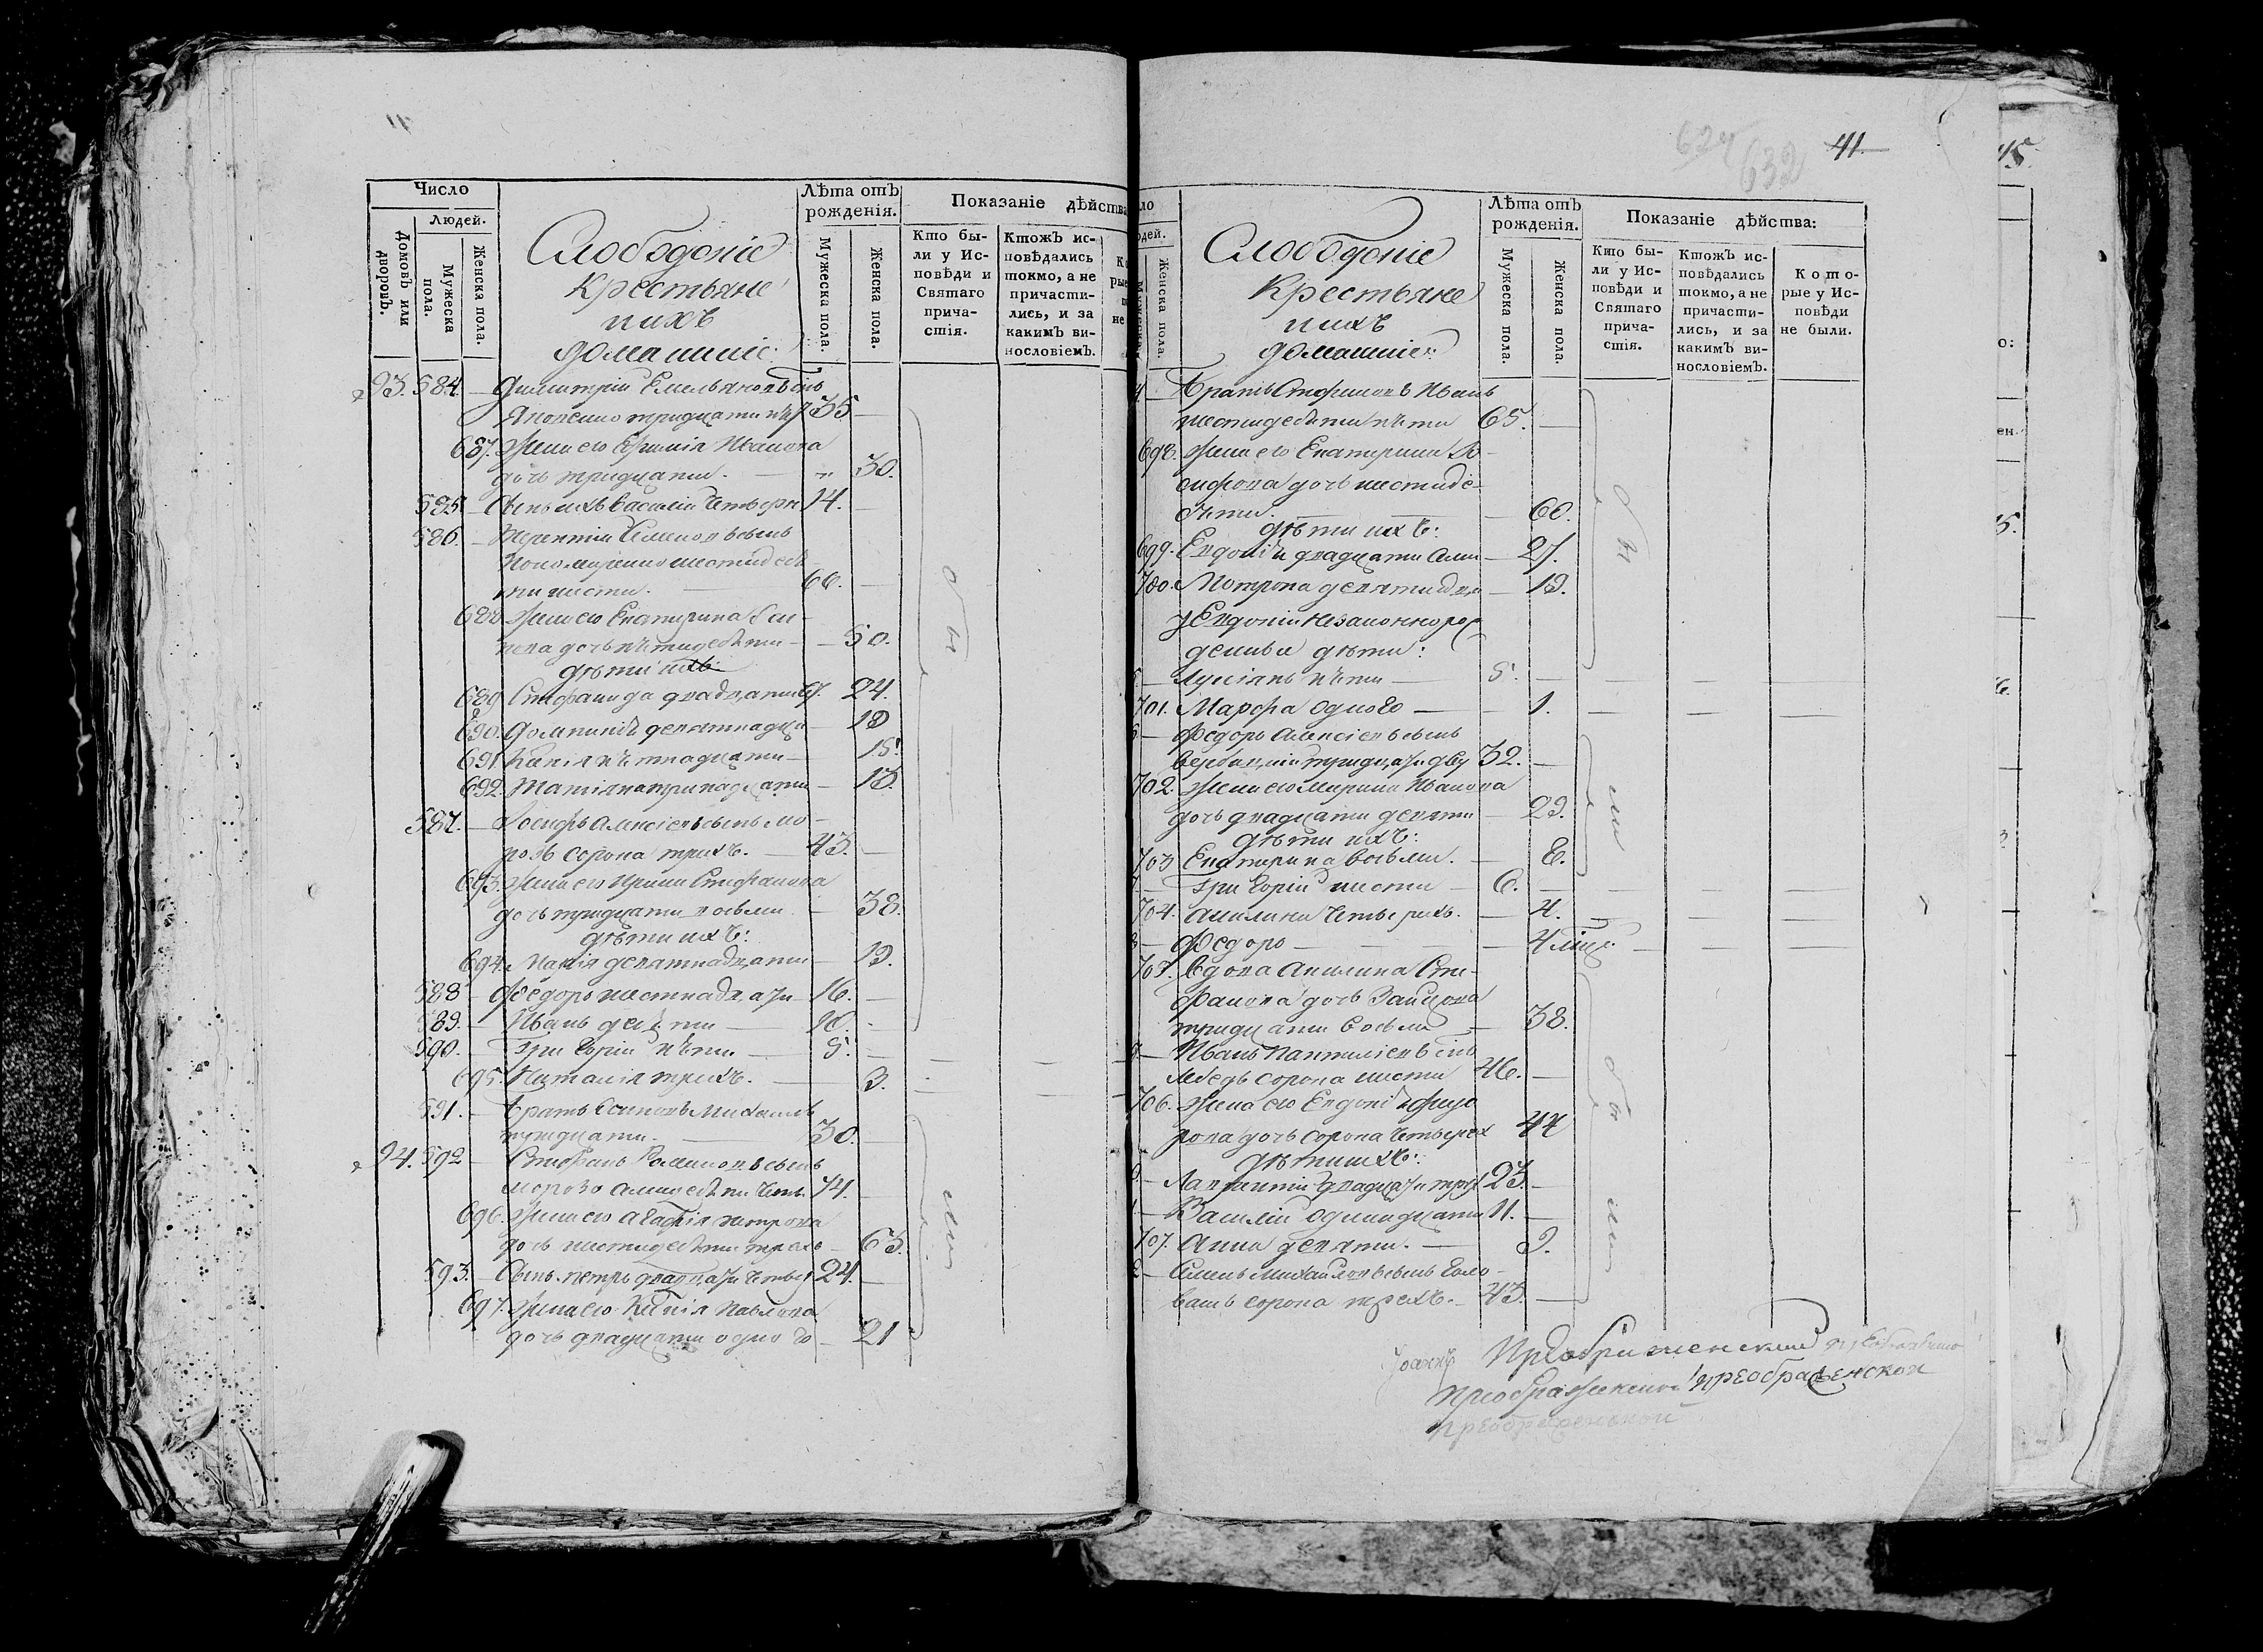 Число
Людей.
Домовъ или дворовъ.
Мужеска пола.
Женска пола.
Слободскіе
Крестьяне
ихъ
домашніе:
Лѣта отъ рожденія.
Мужеска пола.
Женска пола.
Показаніе дѣйства
Кто бы-
ли у Ис-
повѣди и
Святаго
прича-
стія.
Ктожъ ис-
повѣдались
токмо, а не
причасти-
лись, и за
какимъ ви-
нословіемъ.
93. 584. Димитрій Емельяновъ сынъ
тридцати пяти 35.
687. Жена его Иванова
дочь тридцати. 30.
585. Сынъ ихъ Василій 14.
586. Терентій сынъ
Пономаренко шестидеся
ти шести. 66.
688. Жена его Екатерина
дочь пятидесяти 50.
дѣти ихъ
689. Стефанида двадцати 24.
690. Домникія девятнадца 19
691. Ксенія пятнадцати 15.
692. Татіана тринадцати 13.
587. Іосифъ Алексіевъ сынъ Мо
розъ сорока трехъ. 43.
693. Жена его Ирина Стефанова
дочь тридцати восьми 38.
дѣти ихъ:
694. девятнадцати 19.
588 Ѳедоръ шестнадцати 16.
589. Иванъ десяти 10.
590. Григорій пяти 5.
695. Наталія трехъ. 3.
591. Братъ Осиповъ Михаилъ
тридцати. 30.
94. 592 Стефанъ сынъ
Морозъ семидесяти четы. 74.
696. Жена его Агафія Петрова
дочь шестидесяти трехъ 63.
593. Сынъ Петръ двадцати четыр 24.
697. Жена его Ксенія Павлова
дочь двадцати одного 21
были
41.
629
632
Слободскіе
Крестьяне
ихъ
домашніе:
Лѣта отъ
рожденія.
Мужеска пола.
Женска пола.
Показаніе дѣйства:
Кто бы-
ли у Ис-
повѣди и
Святаго
прича-
стія.
Ктожъ ис-
повѣдались
токмо, а не
причасти-
лись, и за
какимъ ви-
нословіемъ.
Кото-
рые у Ис-
повѣди
не были.
Братъ Стефановъ Иванъ
шестидесяти пяти 65.
698. Жена его Екатерина Іо-
сифова дочь шестиде-
сяти. 60.
дѣти ихъ:
699. Евдокія двадцати семи 27.
700. Мотрона девятнадца 19.
у Евдокіи незаконнорож
денные дѣти:
Лукіанъ пяти 5.
701. Марфа одного 1.
Ѳедоръ Алексіевъ сынъ
Вербицкій тридцати дву 32.
702. Жена его Марина Иванова
дочь двадцати девяти 29.
дѣти ихъ:
703 Екатерина восьми. 8.
Григорій шести 6.
704. Акилина четырехъ. 4.
Ѳедоръ 4 мѣсяц.
705. Вдова Акилина Сте-
фанова дочь Зайцова
тридцати восьми 38.
Иванъ Пантелеевъ сынъ
Лебедь сорока шести 46.
706. Жена его Евдокія Ѳедо
рова дочь сорока четырех 44
дѣти ихъ:
Лаврентій двадцати трех 23.
Василій одинадцати 11.
707. Анна девяти. 9.
Семенъ Михайловъ сынъ Голо
вашъ сорока трехъ. 43.
были
Іоаннъ Преображенскій
Преображенской Преображенской
Преображенской